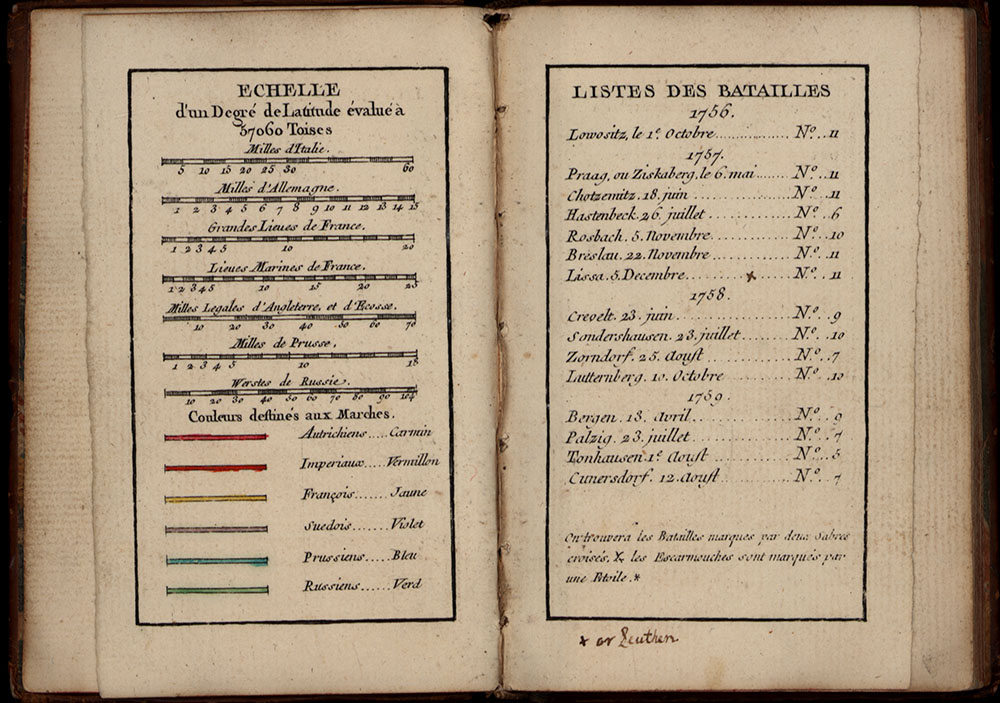 ECHELLE
d'un Degré de Latitude évalué à
57060 Toises
Milles d'Italie.
5 10 15 20 25 30 60
Milles d'Allemagne.
1 2 3 4 5 6 7 8 9 10 11 12 13 14 15
Grandes Lieues de France.
1 2 3 4 5 10 20
Lieues Marines de France.
1 2 3 4 5 10 15 20 25
Milles Legales d'Angleterre, et d'Ecosse.
10 20 30 40 50 60 70
Milles de Prusse.
1 2 3 4 5 10 15
Werstes de Russie.
10 20 30 40 50 60 70 80 90 104
Couleurs destinés aux Marches.
Autrichiens.....Carmin
Imperiaux....Vermillon
François.......Jaune
Suedois.......Violet
Prussiens.....Bleu
Russiens......Verd
LISTES DES BATAILLES
1756.
Lowositz, le 1.e Octobre............... N.o..11
1757.
Praag, ou Ziskaberg, le 6. mai....... N.o..11
Chotzemitz. 18. juin ................ N.o..11
Hastenbeck. 26. juillet ............. N.o..6
Rosbach. 5. Novembre................ N.o..10
Breslau. 22. Novembre ............. N.o..11
Lissa. 5. Decembre........*....... N.o..11
1758.
Crevelt. 23. juin................... N.o..9
Sondershausen. 23. juillet ......... N.o..10
Zorndorf. 25. Aoust ............... N.o..7
Lutternberg. 10. Octobre ........... N.o..10
1759.
Bergen. 13. Avril................... N.o..9
Palzig. 23. juillet.................. N.o..7
Tonhausen. 1.e Aoust ............... N.o..5
Cunersdorf. 12. Aoust .............. N.o..7
On trouvera les Batailles marques par deux Sabres
croisés. ⚔ les Escarmouches sont marqués par
une Etoile.*
* or Leuthen